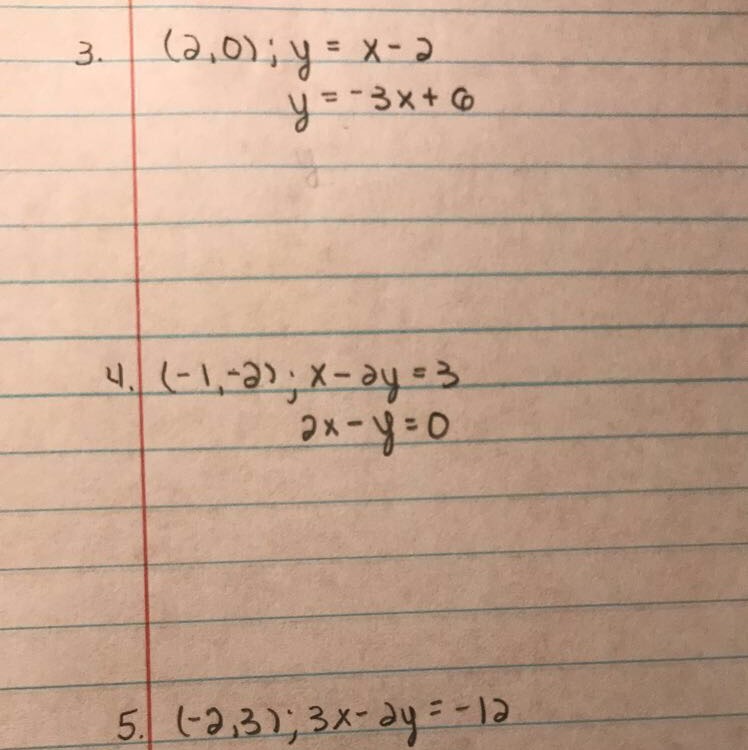 3. (2,0); y = x - 2
y = -3x + 6
y
4. (-1,-2); x - 2y = 3
2x - y = 0
5. (-2,3); 3x - 2y = -12